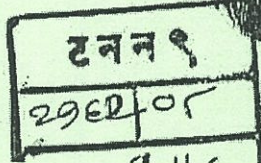 ट न न ९
२९६२/०५